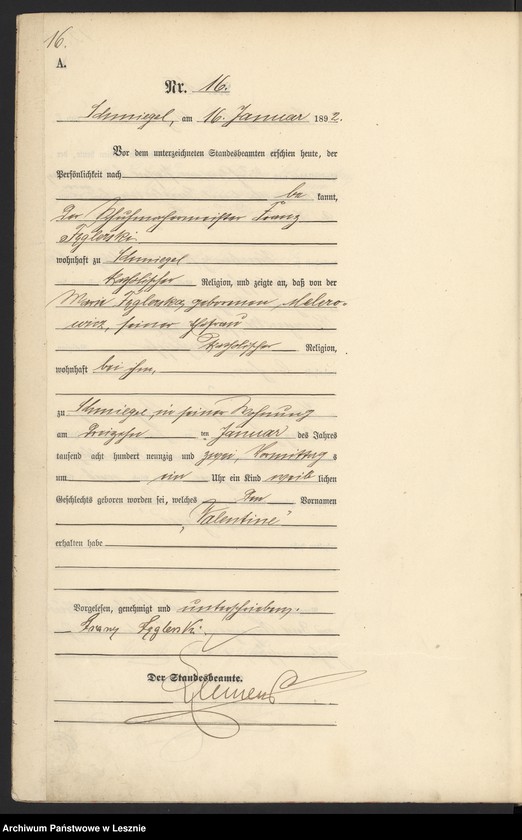 16.
A.
Nr. 16.
Schmiegel, am 16. Januar 1892.
Vor dem unterzeichneten Standesbeamten erschien heute, der
Persönlichkeit nach
be kannt,
der Schuhmachermeister Franz
wohnhaft zu Schmiegel
katholischer Religion, und zeigte an, daß von der
Marie geborenen Malero-
wicz, seiner Ehefrau
katholischer Religion,
wohnhaft bei ihm,
zu Schmiegel in seiner Wohnung
am dreizehn ten Januar des Jahres
tausend acht hundert neunzig und zwei, Vormittag s
um ein Uhr ein Kind weib lichen
Geschlechts geboren worden sei, welches den Vornamen
"Valentine"
erhalten habe
Vorgelesen, genehmigt und unterschrieben.
Franz
Der Standesbeamte.
Clemens
Archiwum Państwowe w Lesznie